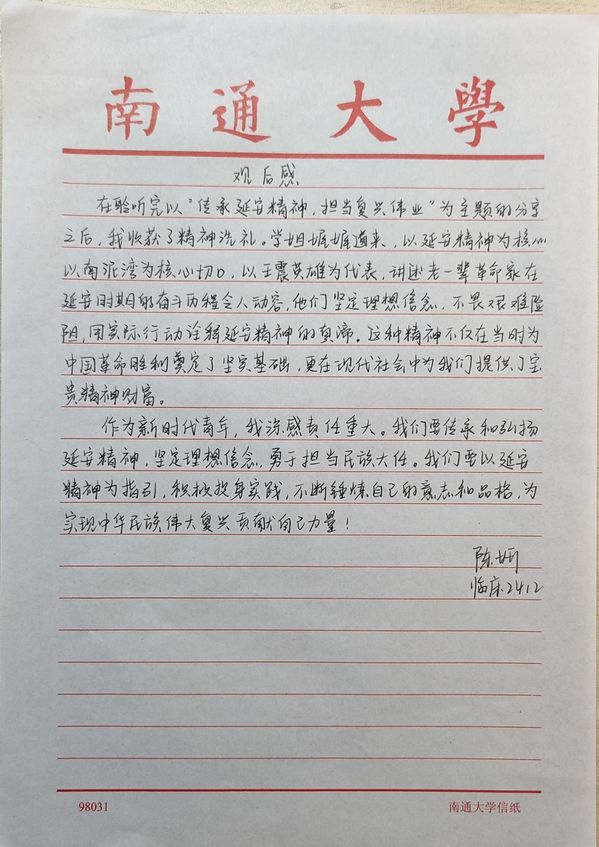 南通大學
观后感
在聆听完以“传承延安精神，担当复兴伟业”为主题的分享
之后，我收获了精神洗礼。学姐娓娓道来，以延安精神为核心
以南泥湾为核心切口，以王震英雄为代表，讲述老一辈革命家在
延安时期的奋斗历程令人动容，他们坚定理想信念，不畏艰难险
阻，用实际行动诠释延安精神的真谛。这种精神不仅在当时为
中国革命胜利奠定了坚实基础，更在现代社会中为我们提供了宝
贵精神财富。
作为新时代青年，我深感责任重大。我们要传承和弘扬
延安精神，坚定理想信念，勇于担当民族大任。我们要以延安
精神为指引，积极投身实践，不断锤炼自己的意志和品格，为
实现中华民族伟大复兴贡献自己力量！
陈妍
临床2412
98031
南通大学信纸